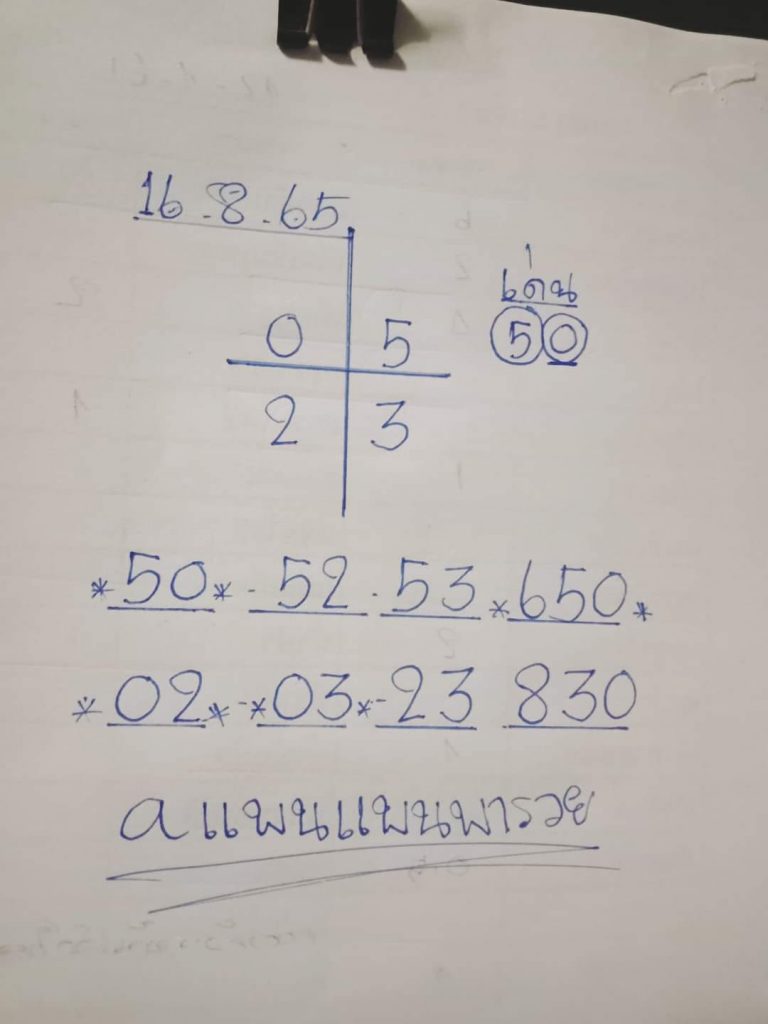 16.8.65
เด่น
0 5
50
2 3
*50* - 52 . 53 *650*
*02* - *03* - 23 830
a แพนแพนพารวย